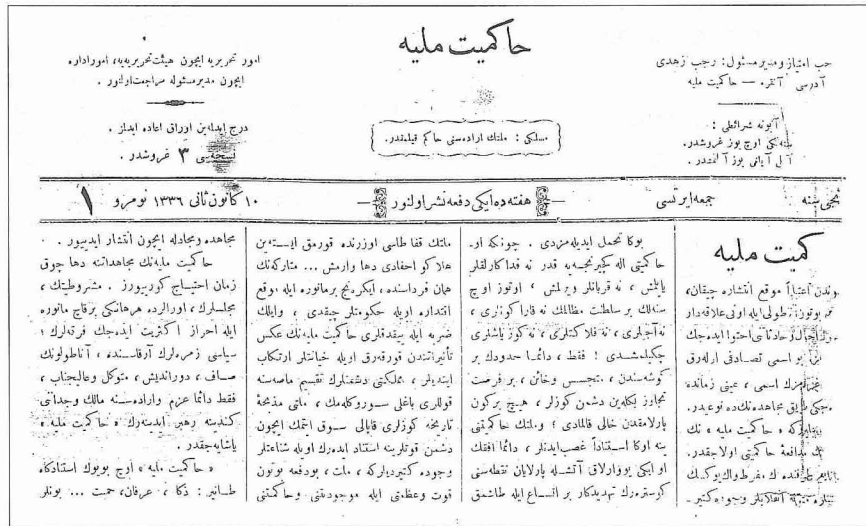 حاكميت مليه
حب امتياز ومدير مسئول : رجب زهدى
آدرسى آنقره — حاكميت مليه
آبونه شرائطى :
سنه‌لكى اوچ يوز غروشدر.
آلتى آيلغى يوز آلتمشدر.
مسلكى : ملتك اراده‌سنى حاكم قيلمقدر.
امور تحريريه ايچون هيئت تحريريه‌يه، اموراداره
ايچون مديرمسئوله مراجعت اولنور .
درج ايدلمه‌ين اوراق اعاده ايدلمز .
نسخه‌سى ٣ غروشدر .
نجى سنه
جمعه ايرتسى
هفته‌ده ايكى دفعه نشر اولنور
١٠ كانون ثانى ١٣٣٦ نومرو ١
كميت مليه
موقع انتشاره چيقان،
اسمى تصادفى اره‌رق
اسمى ، عينى زمانده
مجاهده‌نك‌ده نوعيدر.
« حاكميت مليه » نك
مدافعۀ حاكميتى اولاجقدر.
بوكا تحمل ايديله‌مزدى . چونكه او
حاكميتى اله كچيرنجيه‌يه قدر نه فداكارلقلر
ياپلمش ، نه قربانلر ويرلمش ، اوتوز اوچ
سنه‌لك بر سلطنت مظالمك نه قارا كونلرى ،
نه آجيلرى، نه فلاكتلرى ، نه كوز ياشلرى
چكيلمشدى ! فقط ، دائما حدودك بر
كوشه‌سندن ، متجسس وخائن ، بر فرصت
تجاوز بكله‌ين دشمن كوزلر ، هيچ بركون
پارلامقدن خالى قالمادى ؛ وملت حاكميتنى
ينه اوكا استناداً غصب ايدنلر ، دائما افقك
او ايكى يووارلاق آتشله پارلايان نقطه‌سنى
كوستره‌رك تهديدكار بر ايله طاشمق
ملتك قفا طاسى اوزرنده قورمق ايسته‌ين
هلاكو احفادى دها وارمش ... متاركه‌نك
همان فرداسنده ، ايكرنج برمانوره ايله موقع
اقتداره اويله حكومتلر چيقدى ، وايلك
ضربه ايله ييقدقلرى حاكميت مليه‌نك عكس
تأثيراتندن قورقه‌رق اويله خيانتلر ارتكاب
ايتديلر ، مملكتى دشمنلرك تقسيم ماصه‌سنه
قوللرى باغلى سوروكله‌مك ، ملتى مذبحۀ
تاريخه كوزلرى قاپالى سوق ايتمك ايچون
دشمن قوتلرينه استناد ايده‌رك اويله شناعتلر
وجوده كتيرديلركه ، ملت ، بودفعه بوتون
قوت وعظمتى ايله موجوديتنى وحاكميتنى
مجاهده ومجادله ايچون انتشار ايدييور .
حاكميت مليه‌نك مجاهداتنه دها چوق
زمان احتياج كوريورز . مشروطيتك ،
مجلسلرك، اورالرده هرهانكى برقاچ مانوره
ايله احراز اكثريت ايده‌جك فرقه‌لرك ؛
سياسى زمره‌لرك آرقاسنده ، آناطولونك
صاف ، دورانديش ، متوكل وعاليجناب ،
فقط دائما عزم واراده‌سنه مالك وجدانى
كندينه رهبر ايدينه‌رك « حاكميت مليه »
ياشايه‌جقدر .
« حاكميت مليه » اوچ بويوك استنادكاه
طانير : ذكا ، عرفان، حميت ... بونلر